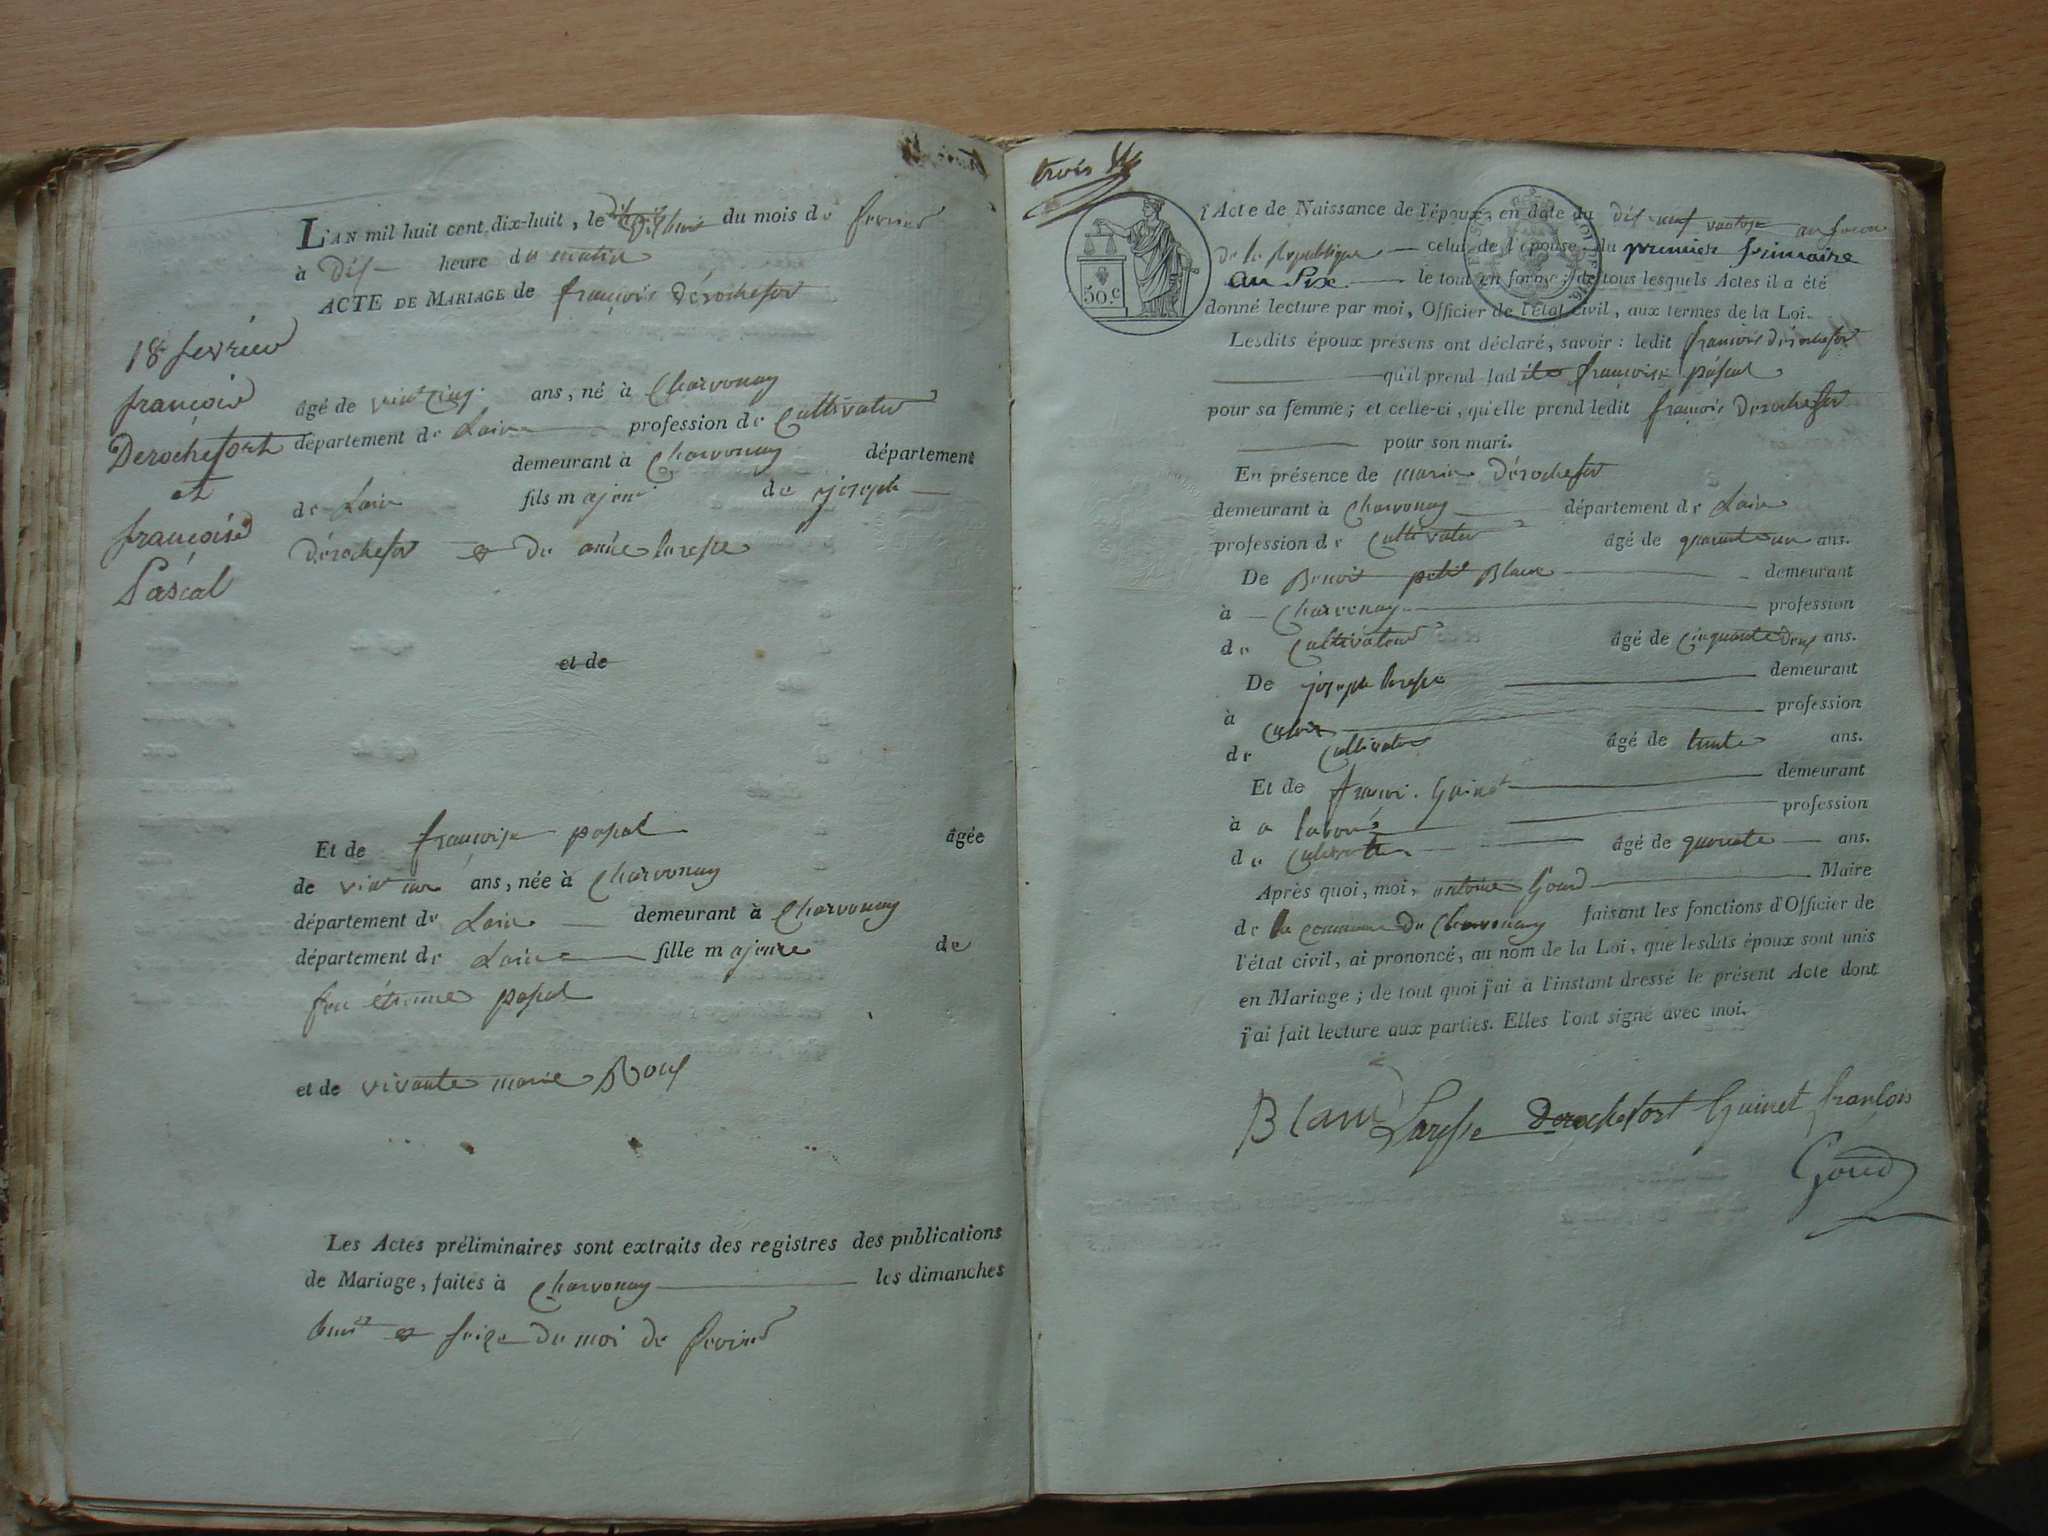 18 fevrier
françois
Derochefort
et
françoise
Pascal
L'AN mil huit cent dix-huit, le dix huit du mois de fevrier
à dix heure du matin
ACTE DE MARIAGE de françois dérochefort
âgé de vint cinq ans, né à Charvonay
département de Lain profession de Cultivateur
demeurant à Charvonay département
de Lain fils majeur de joseph
dérochefort et de laresse
et de
Et de françoise pascal âgée
de vint ans, née à Charvonay
département de Lain demeurant à Charvonay
département de Lain fille majeure de
feu étienne pascal
et de marie Roux
Les Actes préliminaires sont extraits des registres des publications
de Mariage, faites à Charvonay les dimanches
huit et seize du moi de fevrier
trois
50.c
l'Acte de Naissance de l'époux, en date du dix neuf vantose an second
de la Republique celui de l'épouse du premier frimaire
an Six le tout en forme; de tous lesquels Actes il a été
donné lecture par moi, Officier de l'état civil, aux termes de la Loi.
Lesdits époux présens ont déclaré, savoir: ledit françois dérochefort
qu'il prend ladite françoise pascal
pour sa femme; et celle-ci, qu'elle prend ledit françois derochefort
pour son mari.
En présence de dérochefort
demeurant à Charvonay département de Lain
profession de Cultivateur âgé de quarante un ans.
De Benoit petit Blanc demeurant
à Charvonay profession
de Cultivateur âgé de cinquante deux ans.
De joseph laresse demeurant
à profession
de Cultivateur âgé de trente ans.
Et de Guinet demeurant
à profession
de âgé de quarante ans.
Après quoi, moi, antoine Goud Maire
de la commune de Charvonay faisant les fonctions d'Officier de
l'état civil, ai prononcé, au nom de la Loi, que lesdits époux sont unis
en Mariage; de tout quoi j'ai à l'instant dressé le présent Acte dont
j'ai fait lecture aux parties. Elles l'ont signé avec moi.
Blanc Laresse Derochefort Guinet franCois
Goud